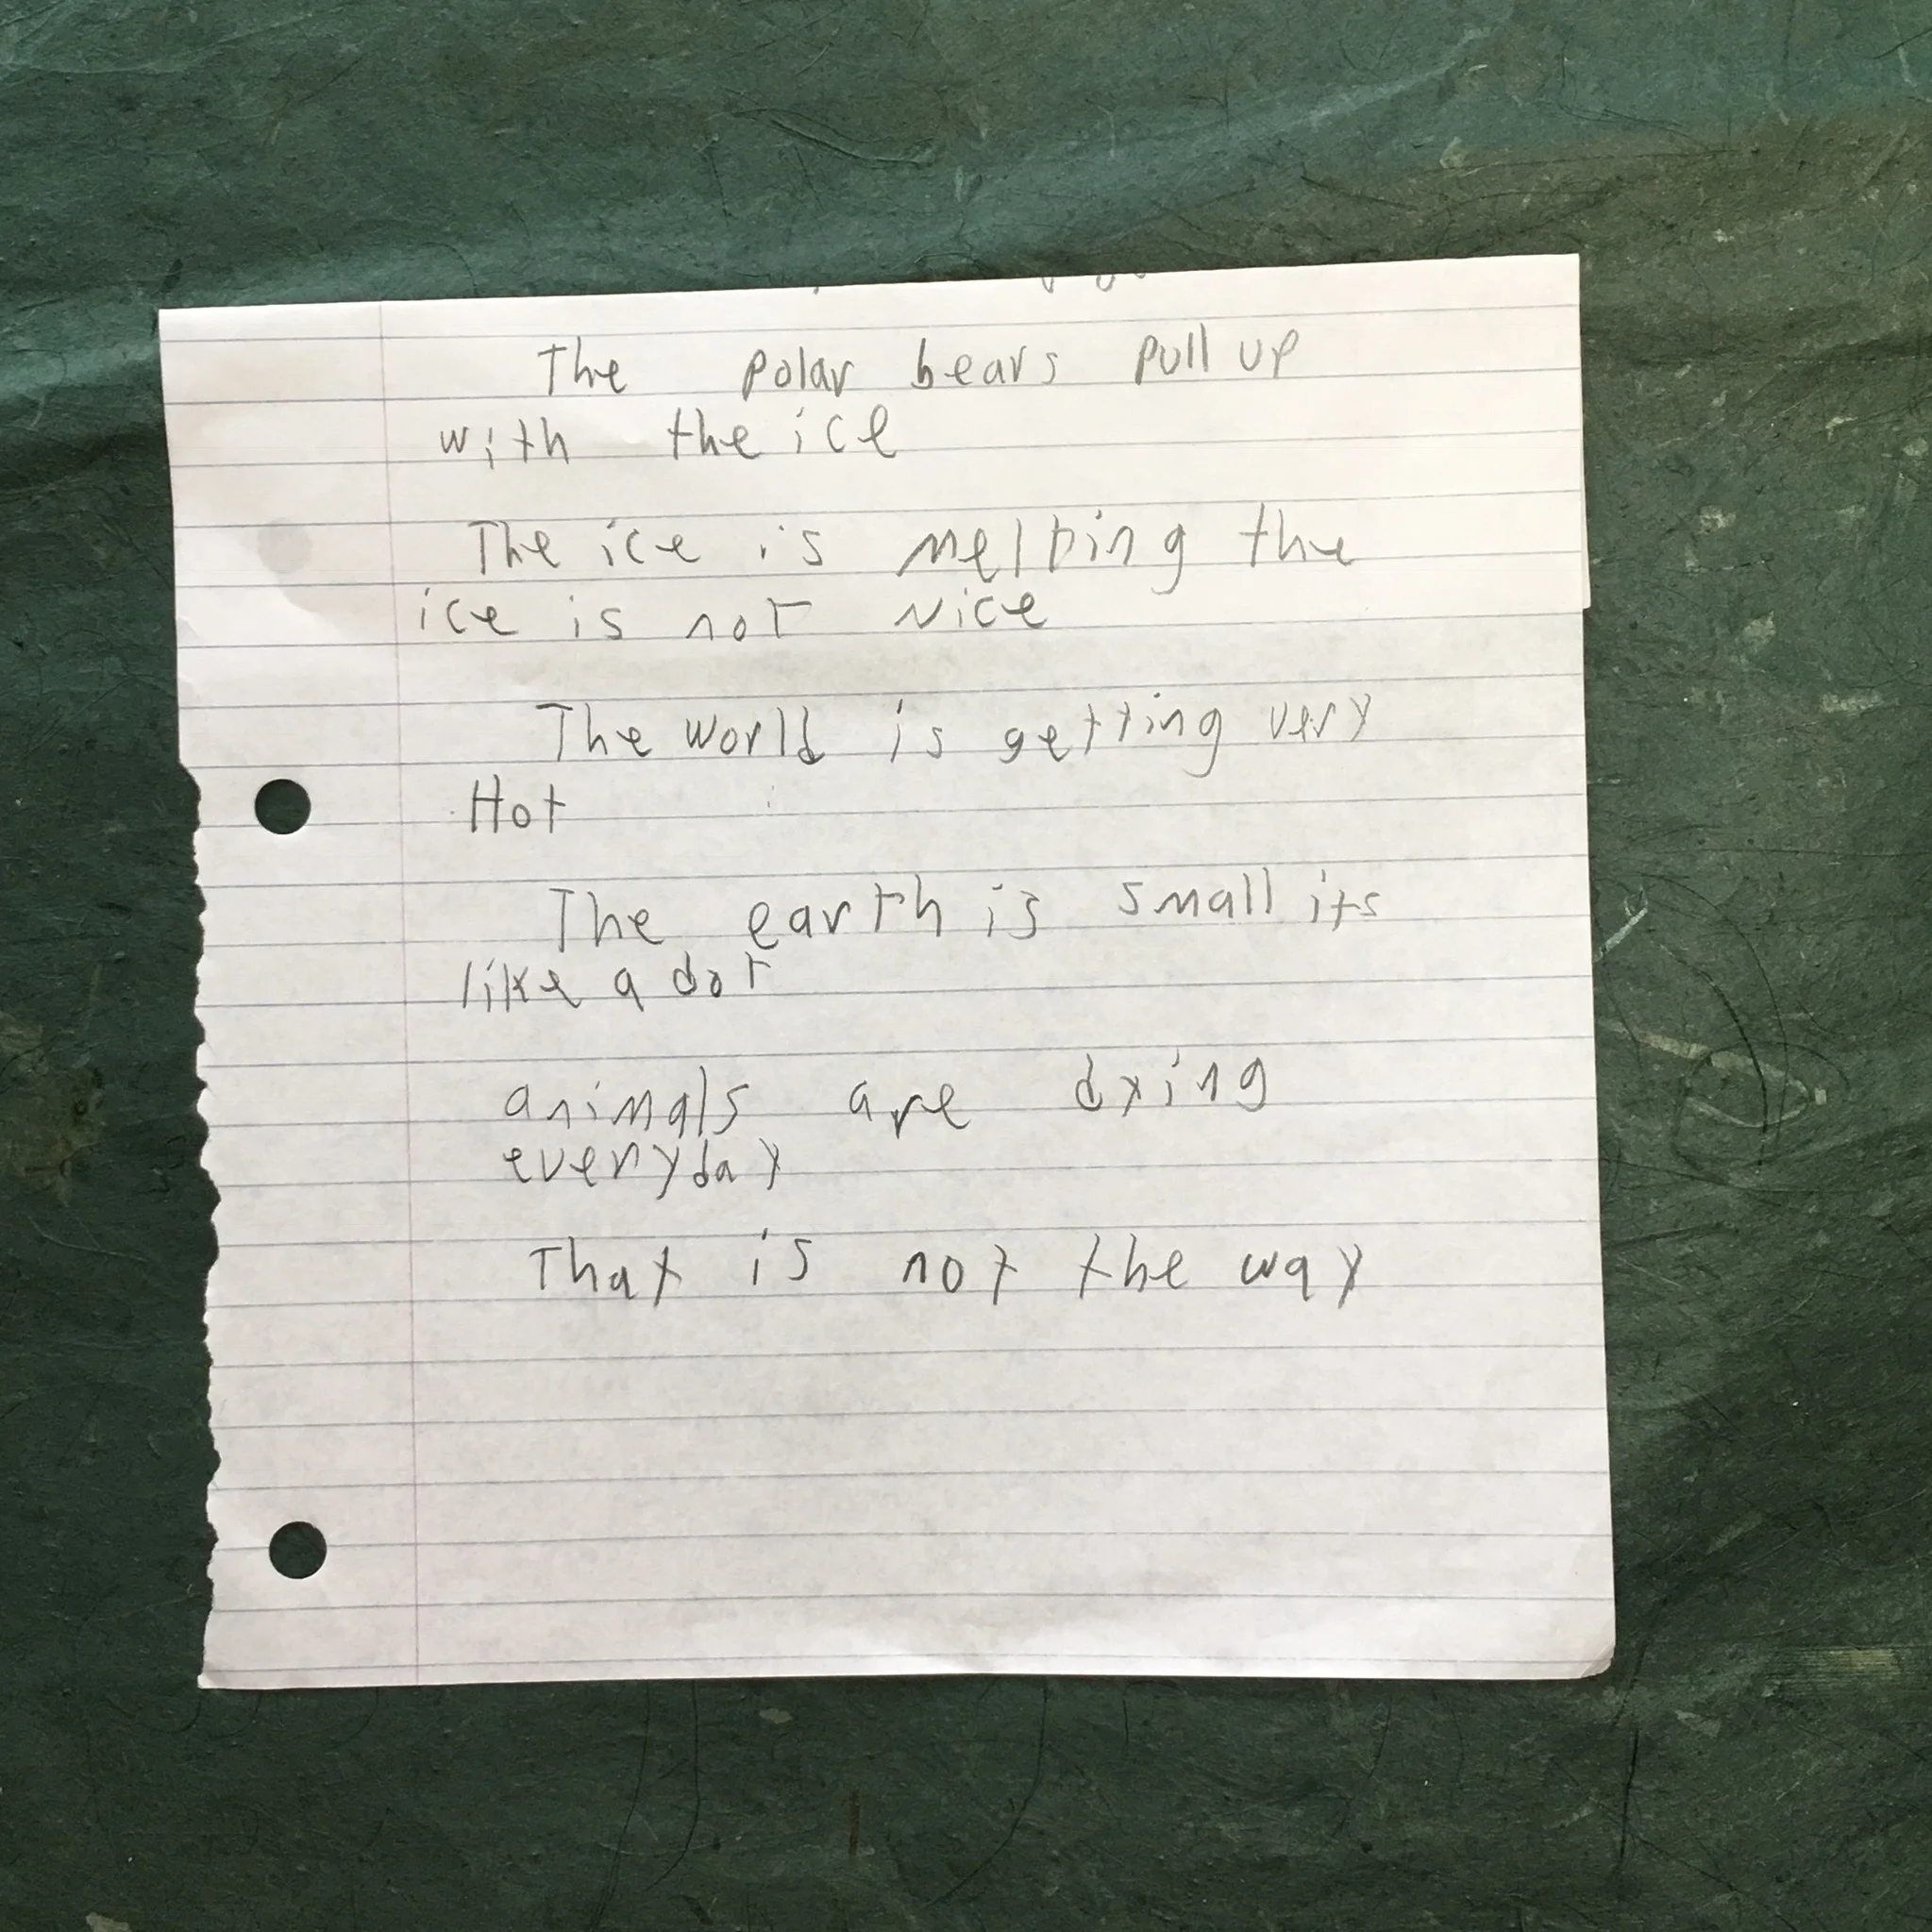 The polar bears pull up
with the ice
The ice is melting the
ice is not Nice
The world is getting very
Hot
The earth is small its
like a dot
animals are dying
everyday
That is not the way